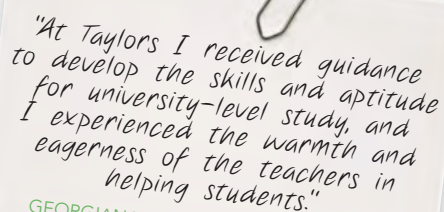 "At Taylors I received guidance
to develop the skills and aptitude
for university-level study, and
I experienced the warmth and
eagerness of the teachers in
helping students."